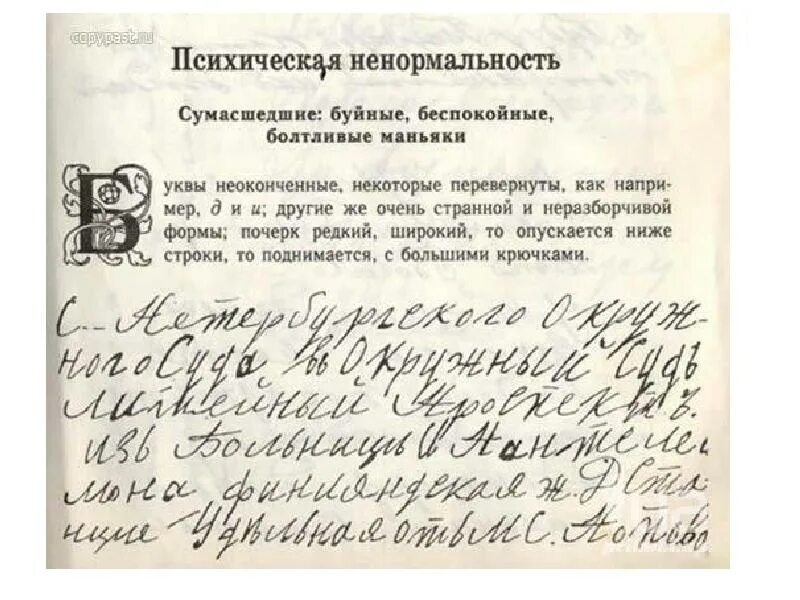 copypast.ru
Психическая ненормальность
Сумасшедшие: буйные, беспокойные,
болтливые маньяки
Буквы неоконченные, некоторые перевернуты, как напри-
мер, д и и; другие же очень странной и неразборчивой
формы; почерк редкий, широкий, то опускается ниже
строки, то поднимается, с большими крючками.
С.. Петербургского Окруж-
ного Суда въ Окружный Судъ
Литейный Проспектъ.
изъ Больницы Пантелей
мона финляндская ж. Д Ста
нцие Удѣльная отъ М С. Попово